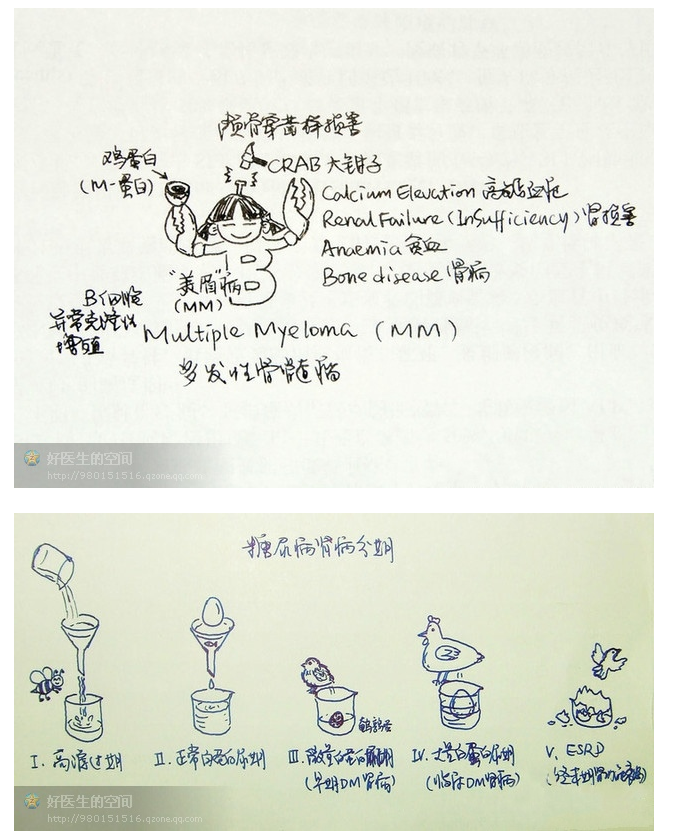 颅骨穿凿样损害
鸡蛋白
(M-蛋白)
CRAB 大钳子
Calcium Elevation 高钙血症
Renal Failure (Insufficiency) 肾损害
Anaemia 贫血
Bone disease 骨病
"美眉"病
(MM)
B
B细胞
异常克隆性
增殖
Multiple Myeloma (MM)
多发性骨髓瘤
好医生的空间
http://980151516.qzone.qq.com
糖尿病肾病分期
鹌鹑蛋
I. 高滤过期
II. 正常白蛋白尿期
III. 微量白蛋白尿期
(早期DM肾病)
IV. 大量白蛋白尿期
(临床DM肾病)
V. ESRD
(终末期肾病)
好医生的空间
http://980151516.qzone.qq.com